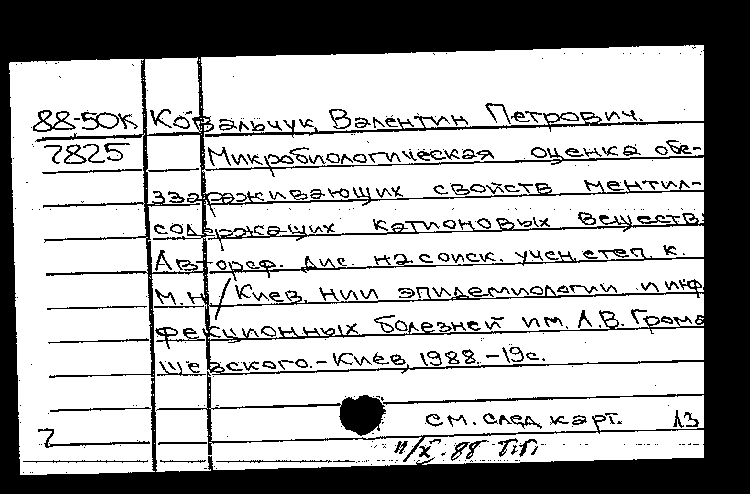 88-50К Ковальчук, Валентин Петрович.
7825 Микробиологическая оценка обе-
ззараживающих свойств ментил-
содержащих катионовых веществ:
Автореф. дис. на соиск. учен. степ. к.
м.н / Киев. нии эпидемиологии и инф
фекционных болезней им. Л.В. Грома
шевского. - Киев, 1988. - 19с.
см. след. карт. 13
7
11/X-88